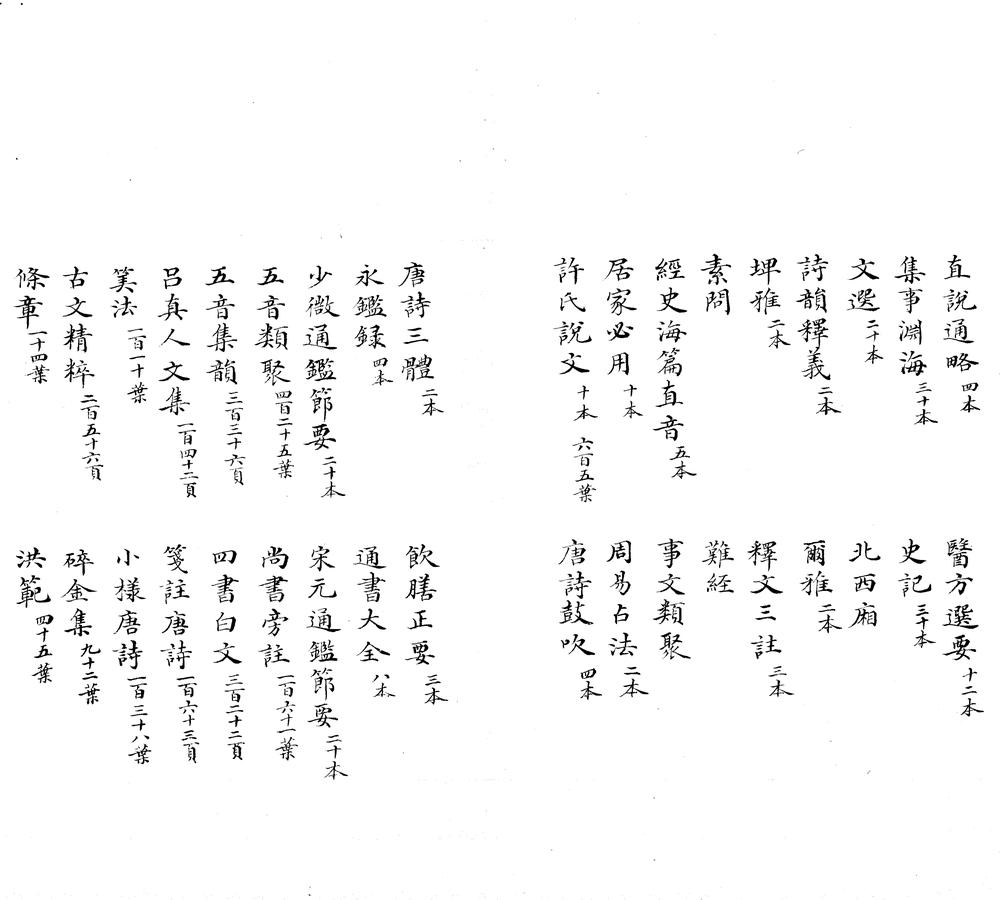 直說通略 四本
醫方選要 十二本
集事淵海 三十本
史記 三十本
文選 二十本
北西廂
詩韻釋義 二本
爾雅 二本
埤雅 二本
釋文三註 三本
素問
難經
經史海篇直音 五本
事文類聚
居家必用 十本
周易占法 二本
許氏說文 十本 六百五葉
唐詩鼓吹 四本
唐詩三體 二本
飲膳正要 三本
永鑑録 四本
通書大全 八本
少微通鑑節要 二十本
宋元通鑑節要 二十本
五音類聚 四百二十五葉
尚書旁註 一百六十一葉
五音集韻 三百三十六頁
四書白文 三百二十二頁
呂真人文集 一百四十二頁
箋註唐詩 一百六十三頁
筭法 一百一十葉
小樣唐詩 一百三十八葉
古文精粹 二百五十六頁
碎金集 九十二葉
條章 一十四葉
洪範 四十五葉